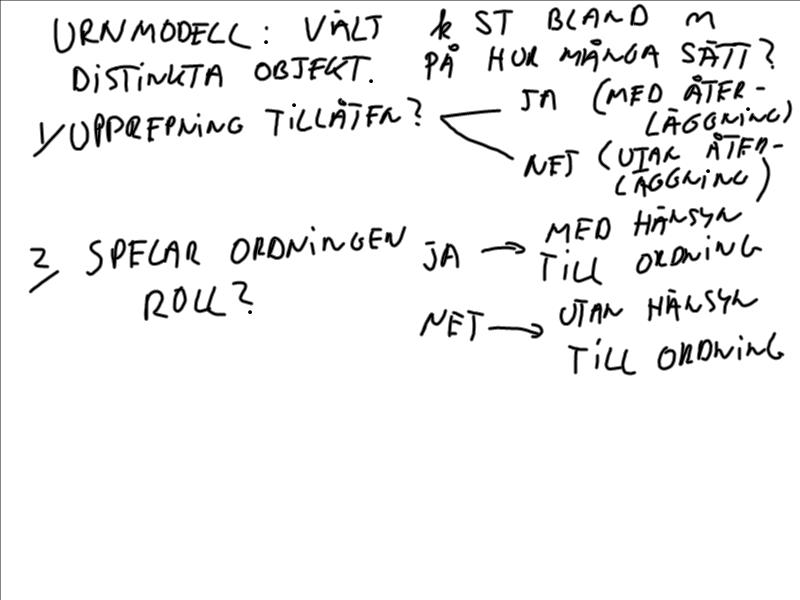 URNMODELL: VÄLJ k ST BLAND n
DISTINKTA OBJEKT. PÅ HUR MÅNGA SÄTT?
1/ UPPREPNING TILLÅTEN? JA (MED ÅTER-
LÄGGNING)
NEJ (UTAN ÅTER-
LÄGGNING)
2/ SPELAR ORDNINGEN JA → MED HÄNSYN
ROLL? TILL ORDNING
NEJ → UTAN HÄNSYN
TILL ORDNING